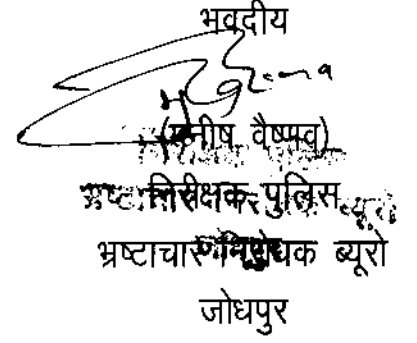 भवदीय
(मनीष वैष्णव)
निरीक्षक पुलिस
भ्रष्टाचार निरोधक ब्यूरो
जोधपुर